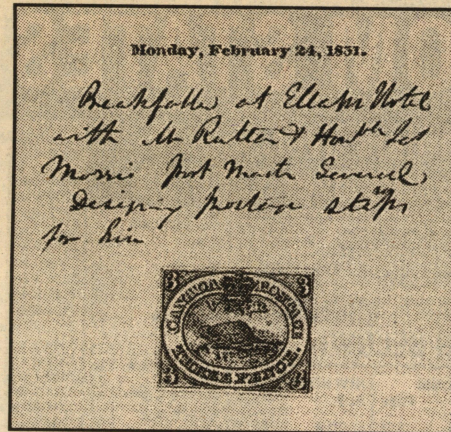 Monday, February 24, 1851.
Breakfasted at Ellahs Hotel
with Mr Ruttan & Honble Jas
Morris Post Master General
Designing postage stamps
for him
3 3
CANADA POSTAGE
THREE PENCE.
3 3